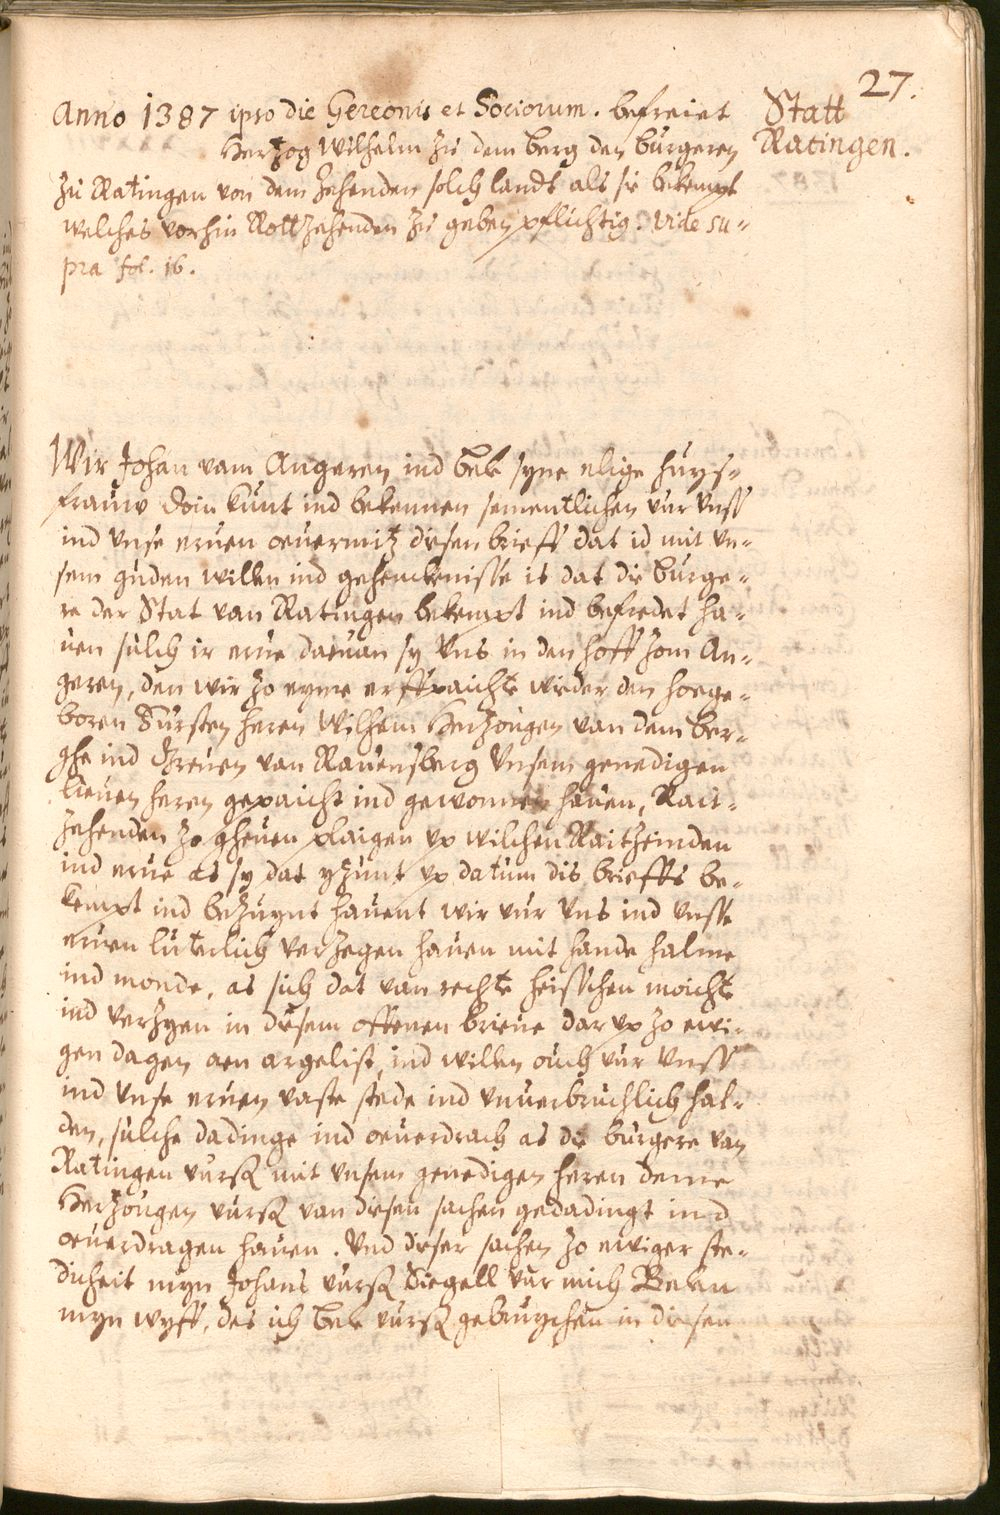 27.
Statt
Ratingen.
Anno 1387 ipso die Gereonis et Sociorum. befreiet
Hertzog Wilhelm zu dem berg den burgeren
zu Ratingen von dem Zehenden solch landts als sie bekempt
welches vorhin Rottzehenden zu geben pflichtig. vide su-
pra fol. 16.
Wir Johan vam Angeren ind bele syne elige huys-
frauw doin kunt ind bekennen sementlichen vur vnss
ind vnse eruen oeuermitz diesen brieff dat id mit vn-
sem guden willen ind gehencknisse is dat die burge-
re der Stat van Ratingen bekempt ind befredet ha-
uen sulch ir erue daruan sy vns in den hoff zom An-
geren, den wir zo eyme erffpaichte wieder den hoege-
boren Fürsten heren Wilhem Hertzougen van dem Ber-
ghe ind Greuen van Rauensberg vnsem genedigen
lieuen heren gepaicht ind gewonnen hauen, Rait-
zehenden zo gheuen plaigen vp wilchen Raitzeinden
ind erue as sy dat yzunt vp datum dis brieffs be-
kempt ind bezuynt hauent wir vur vns ind vnsse
eruen luterlich verzegen hauen mit hande halme
ind monde, as sich dat van rechte heisschen moichte
ind verzyen in diesem offenen brieue dar vp zo ewi-
gen dagen aen argelist, ind willen ouch vur vnss
ind vnse eruen vaste stede ind vnuerbruchlich hal-
den, sulche dadinge ind oeuerdrach as die burgere van
Ratingen vursz mit vnsem genedigen heren deme
Hertzougen vursz van diesen sachen gedadingt ind
oeuerdragen hauen. Vnd dieser sachen zo ewiger ste-
dicheit myn Johans vursz Siegell vur mich Belen
myn wyff, des ich bele vursz gebruychen in diesen